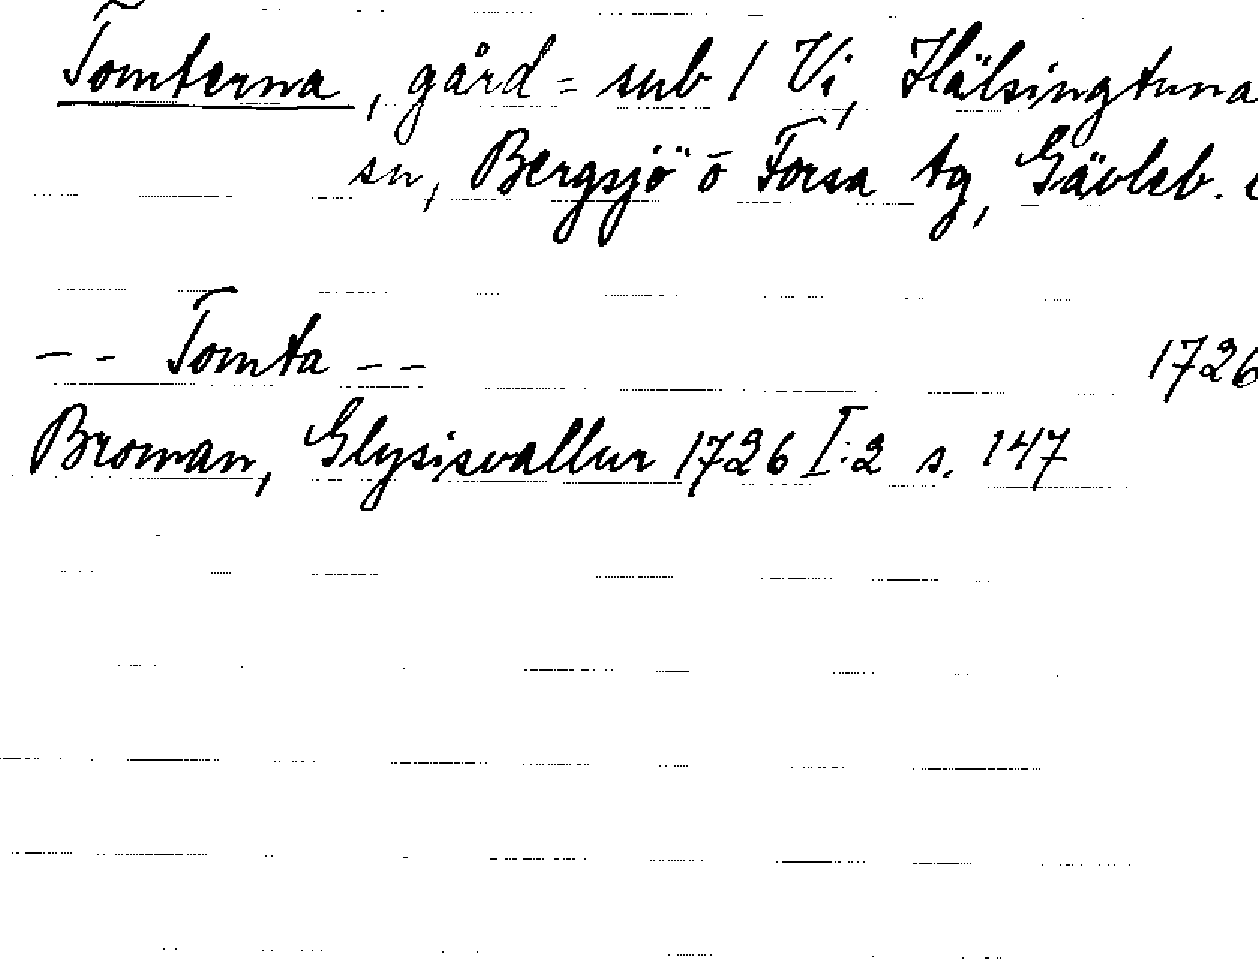 Tomterna, gård = sub 1 Vi, Hälsingtuna
sn, Bergsjö o Forsa tg, Gävleb.
-- Tomta -- 1726
Broman, Glysisvallur 1726 I:2 s. 147